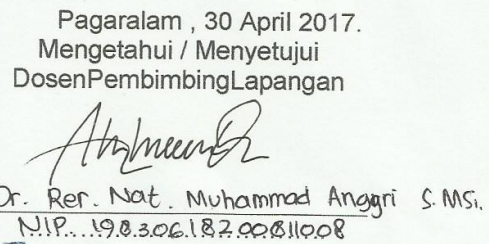 Pagaralam , 30 April 2017.
Mengetahui / Menyetujui
DosenPembimbingLapangan
Dr. Rer. Nat. Muhammad Anggri S.MSi.
NIP. 198306182000811008